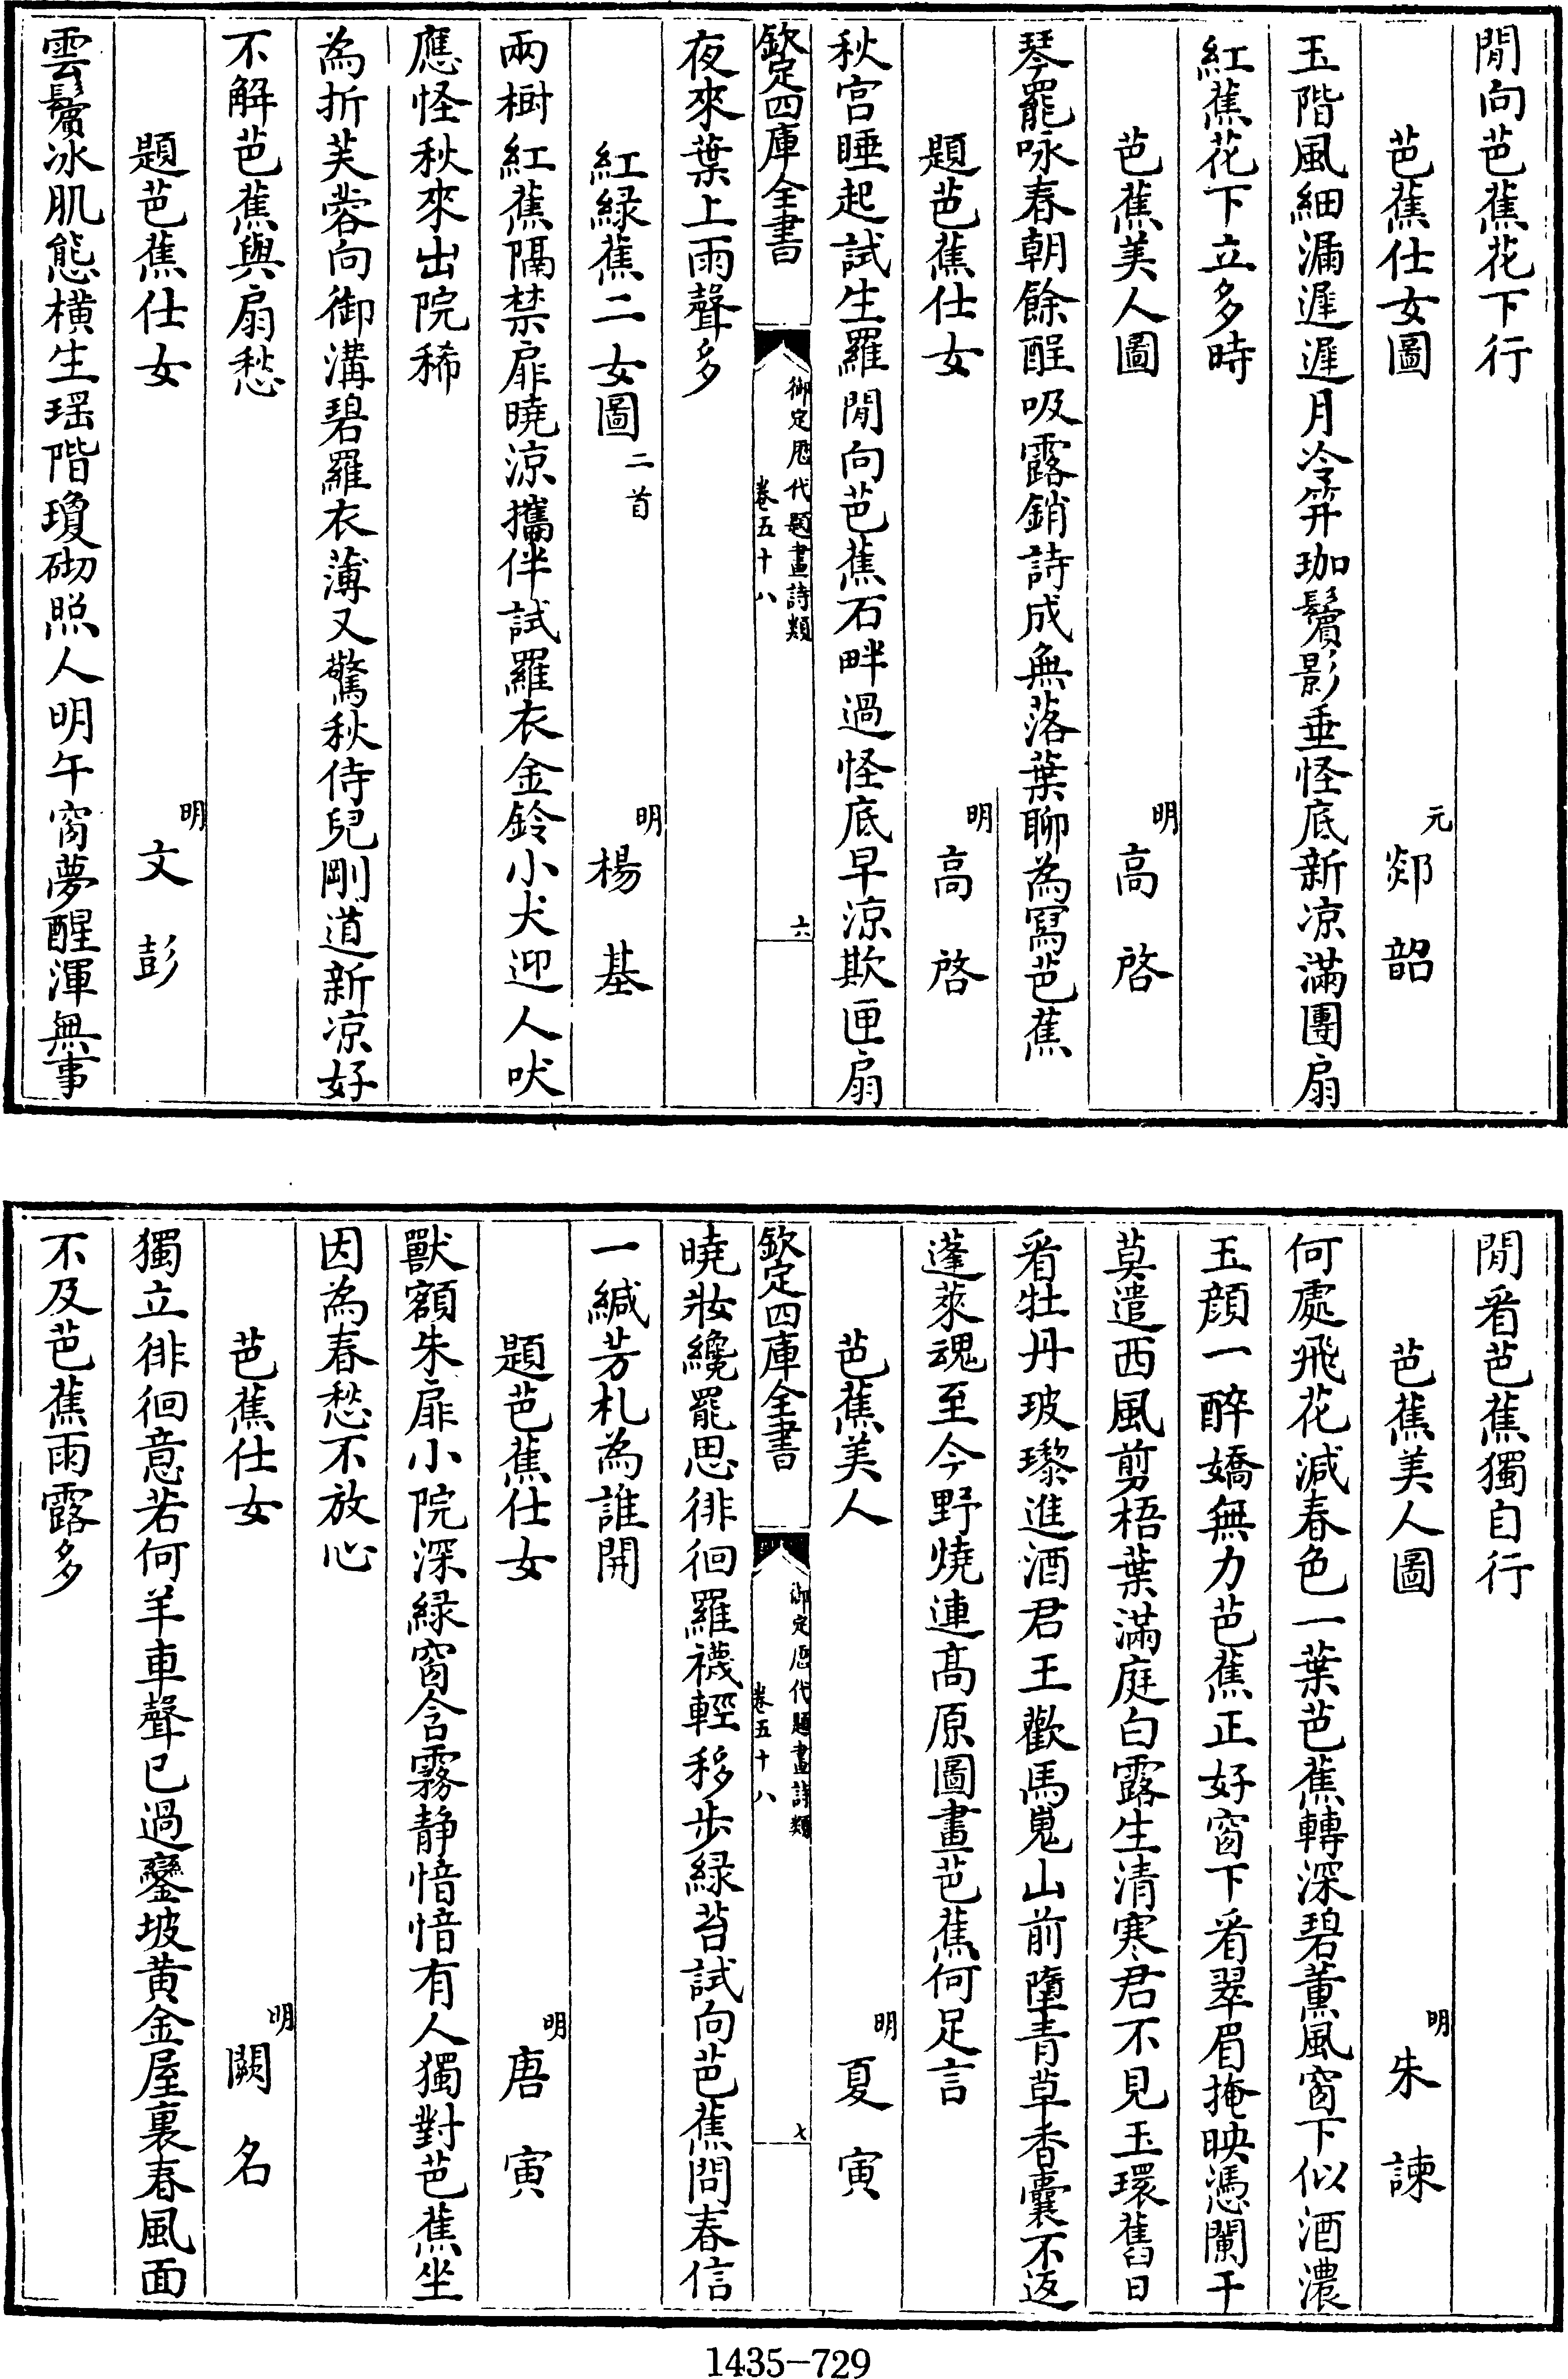 閒向芭蕉花下行
芭蕉仕女圖
元
郯韶
玉階風細漏遲遲月冷笄珈鬢影垂怪底新凉滿團扇
紅蕉花下立多時
芭蕉美人圖
明
高啓
琴罷咏春朝餘酲吸露銷詩成無落葉聊為寫芭蕉
題芭蕉仕女
明
高啓
秋宫睡起試生羅閒向芭蕉石畔過怪底早涼欺匣扇
欽定四庫全書
御定歷代題畫詩類
卷五十八
六
夜來葉上雨聲多
紅緑蕉二女圖
二首
明
楊基
兩樹紅蕉隔禁扉曉涼攜伴試羅衣金鈴小犬迎人吠
應怪秋來出院稀
為折芙蓉向御溝碧羅衣薄又驚秋侍兒剛道新凉好
不解芭蕉與扇愁
題芭蕉仕女
明
文彭
雲鬟冰肌態横生瑶階瓊砌照人明午窗夢醒渾無事
閒看芭蕉獨自行
芭蕉美人圖
明
朱諫
何處飛花減春色一葉芭蕉轉深碧薰風窗下似酒濃
玉顔一醉嬌無力芭蕉正好窗下看翠眉掩映憑闌干
莫遣西風剪梧葉滿庭白露生清寒君不見玉環舊日
看牡丹玻瓈進酒君王歡馬嵬山前墮青草香囊不返
蓬萊魂至今野燒連高原圖畫芭蕉何足言
芭蕉美人
明
夏寅
欽定四庫全書
御定歷代題畫詩類
卷五十八
七
曉妝纔罷思徘徊羅襪輕移步緑苔試向芭蕉問春信
一緘芳札為誰開
題芭蕉仕女
明
唐寅
獸額朱扉小院深緑窗含霧静愔愔有人獨對芭蕉坐
因為春愁不放心
芭蕉仕女
明
闕名
獨立徘徊意若何羊車聲已過鑾坡黄金屋裏春風面
不及芭蕉雨露多
1435-729